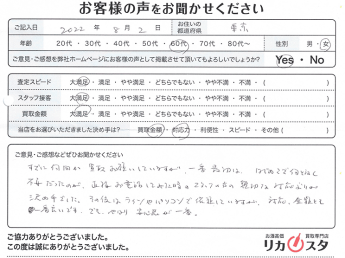 お客様の声をお聞かせください
ご記入日 2022年8月2日 お住いの都道府県 東京
年齢 20代・30代・40代・50代・60代・70代・80代・90代 性別 男・女
ご意見・ご感想を弊社ホームページにお客様の声として掲載させて頂いてもよろしいでしょうか? Yes・No
査定スピード 大満足・満足・やや満足・どちらでもない・やや不満・不満・( )
スタッフ接客 大満足・満足・やや満足・どちらでもない・やや不満・不満・( )
買取金額 大満足・満足・やや満足・どちらでもない・やや不満・不満・( )
当店をお選びいただきました決め手は? 買取金額・対応力・利便性・スピード・その他( )
ご意見・ご感想などぜひお聞かせください
すでに何回か買取お願いしていますが、一番最初は、はじめてで何となく
不安だったのが、直接お電話してみた時の スタッフの方の親切な対応ぶりが
決め手でした。その後はラインやパソコンで依頼していますが、対応、金額とも
安心感が一番。
ご協力ありがとうございました。
この度は誠にありがとうございました。
お酒高価買取専門店
リカスタ